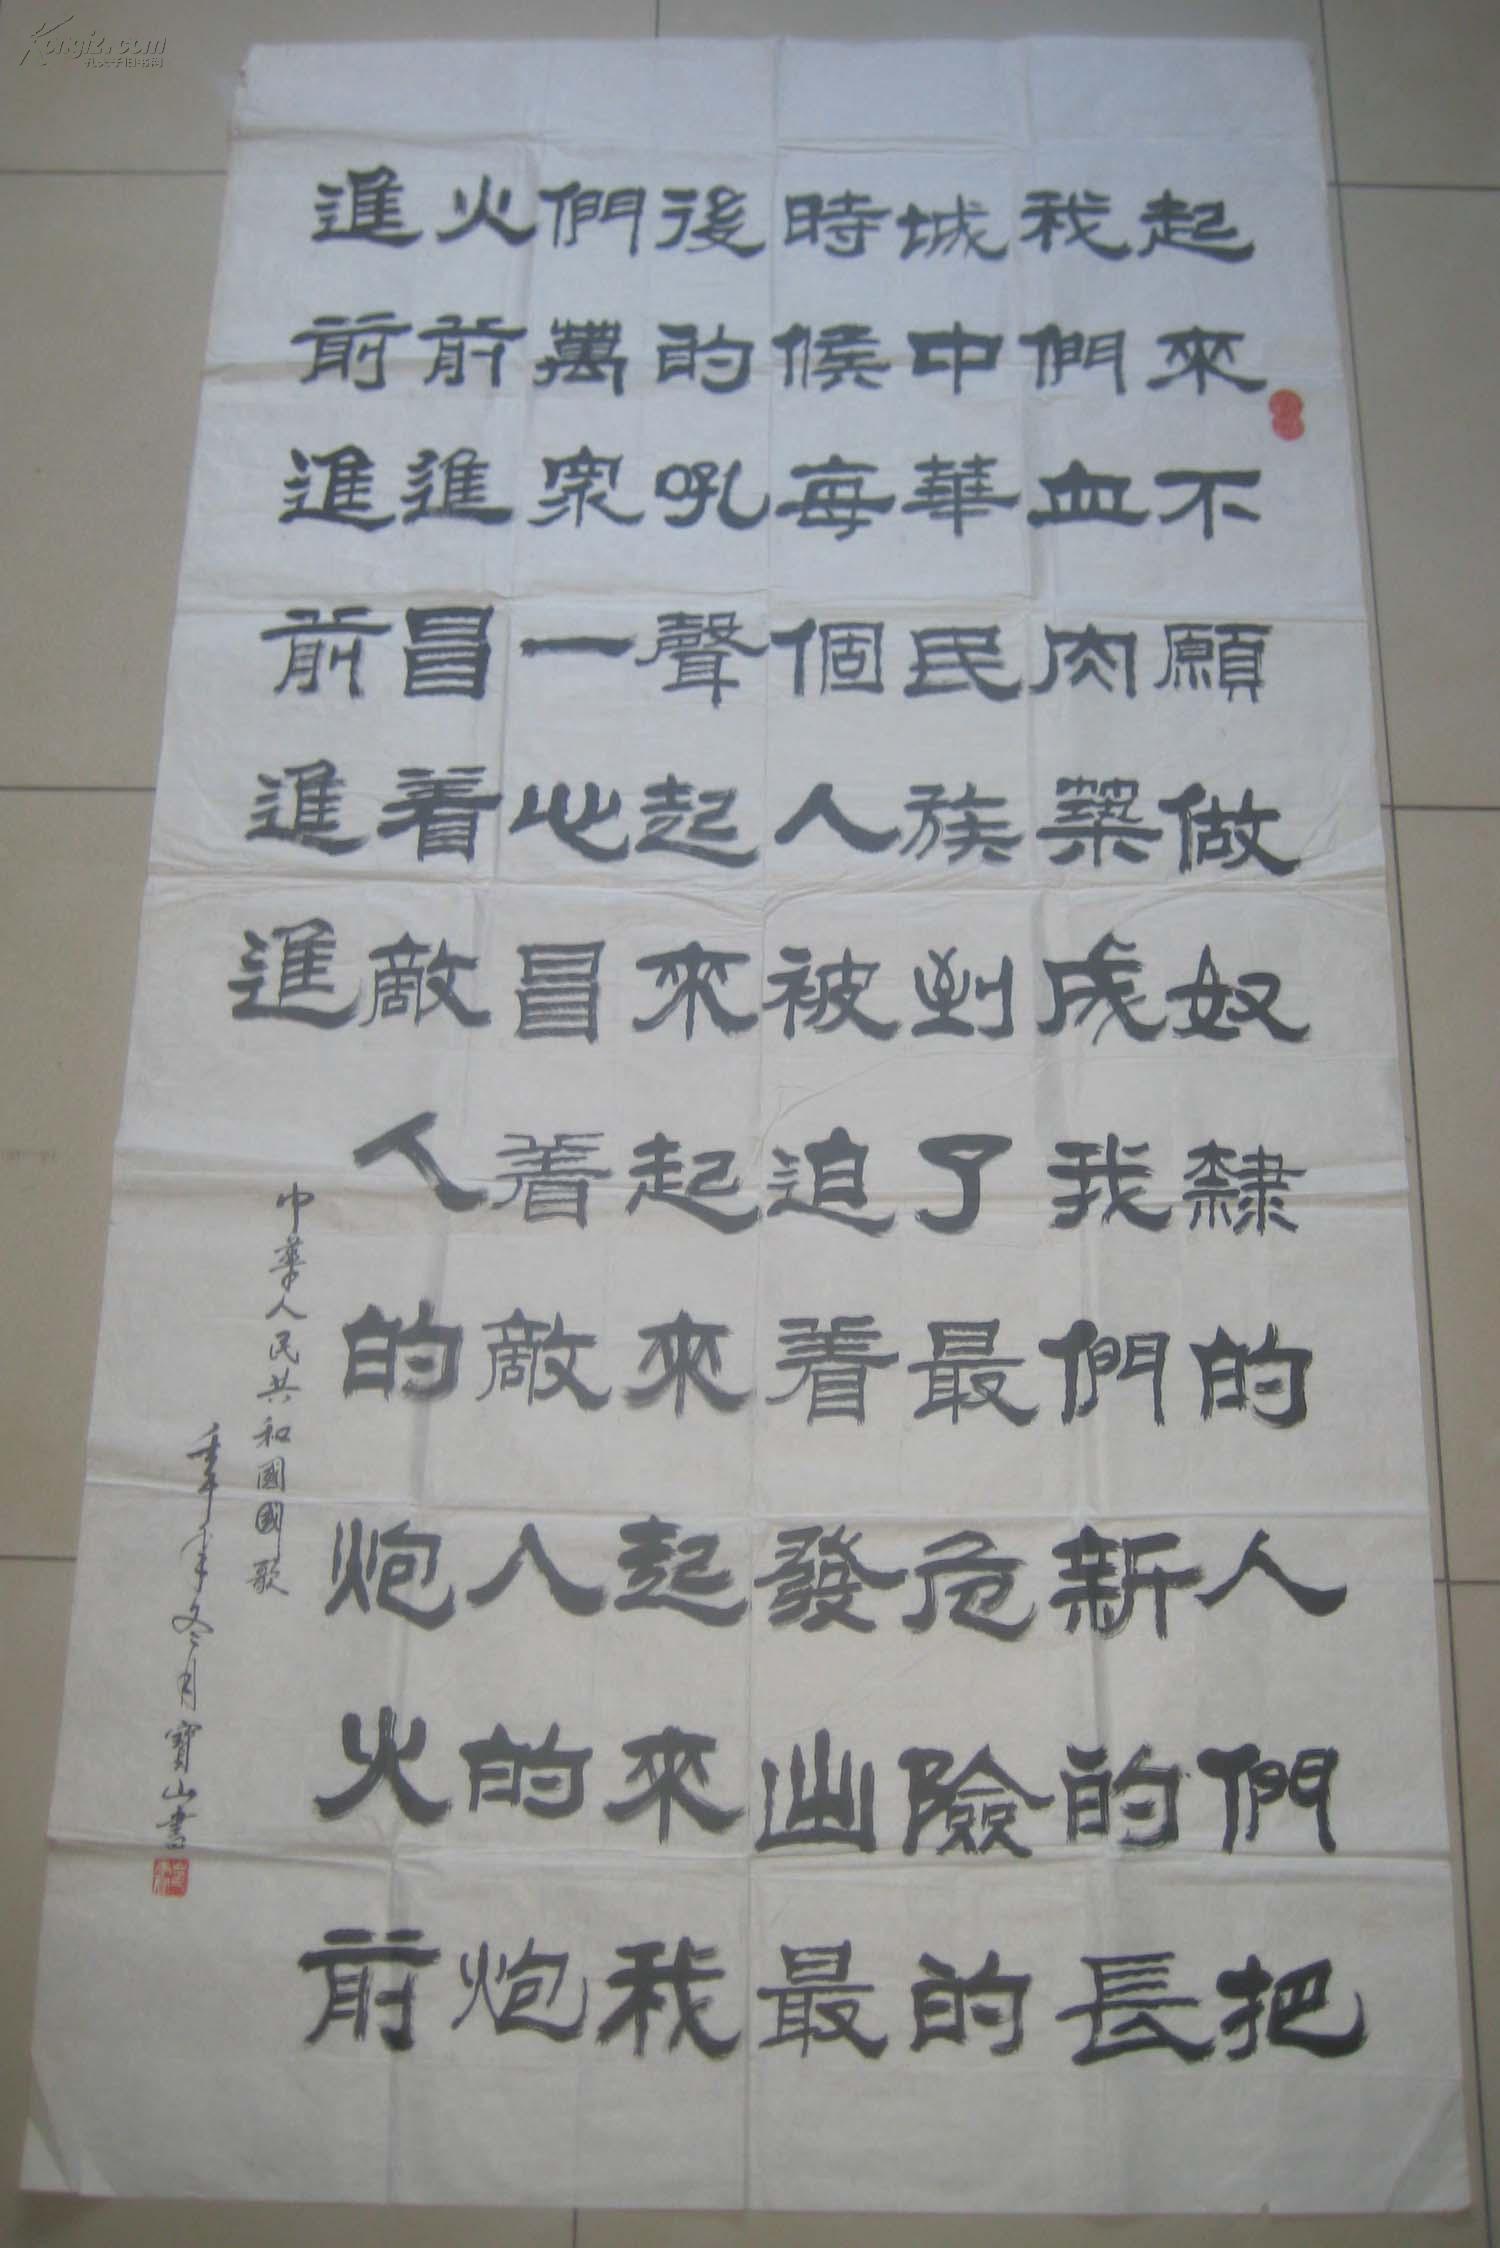 起來不願做奴隸的人們把
我們血肉築成我們新的長
城中華民族到了最危險的
時候每個人被迫着發出最
後的吼聲起來起來起來我
們萬衆一心冒着敵人的炮
火前進冒着敵人的炮火前
進前進前進進
中華人民共和國國歌
年冬月寶山書
Kongfz.com
孔夫子旧书网